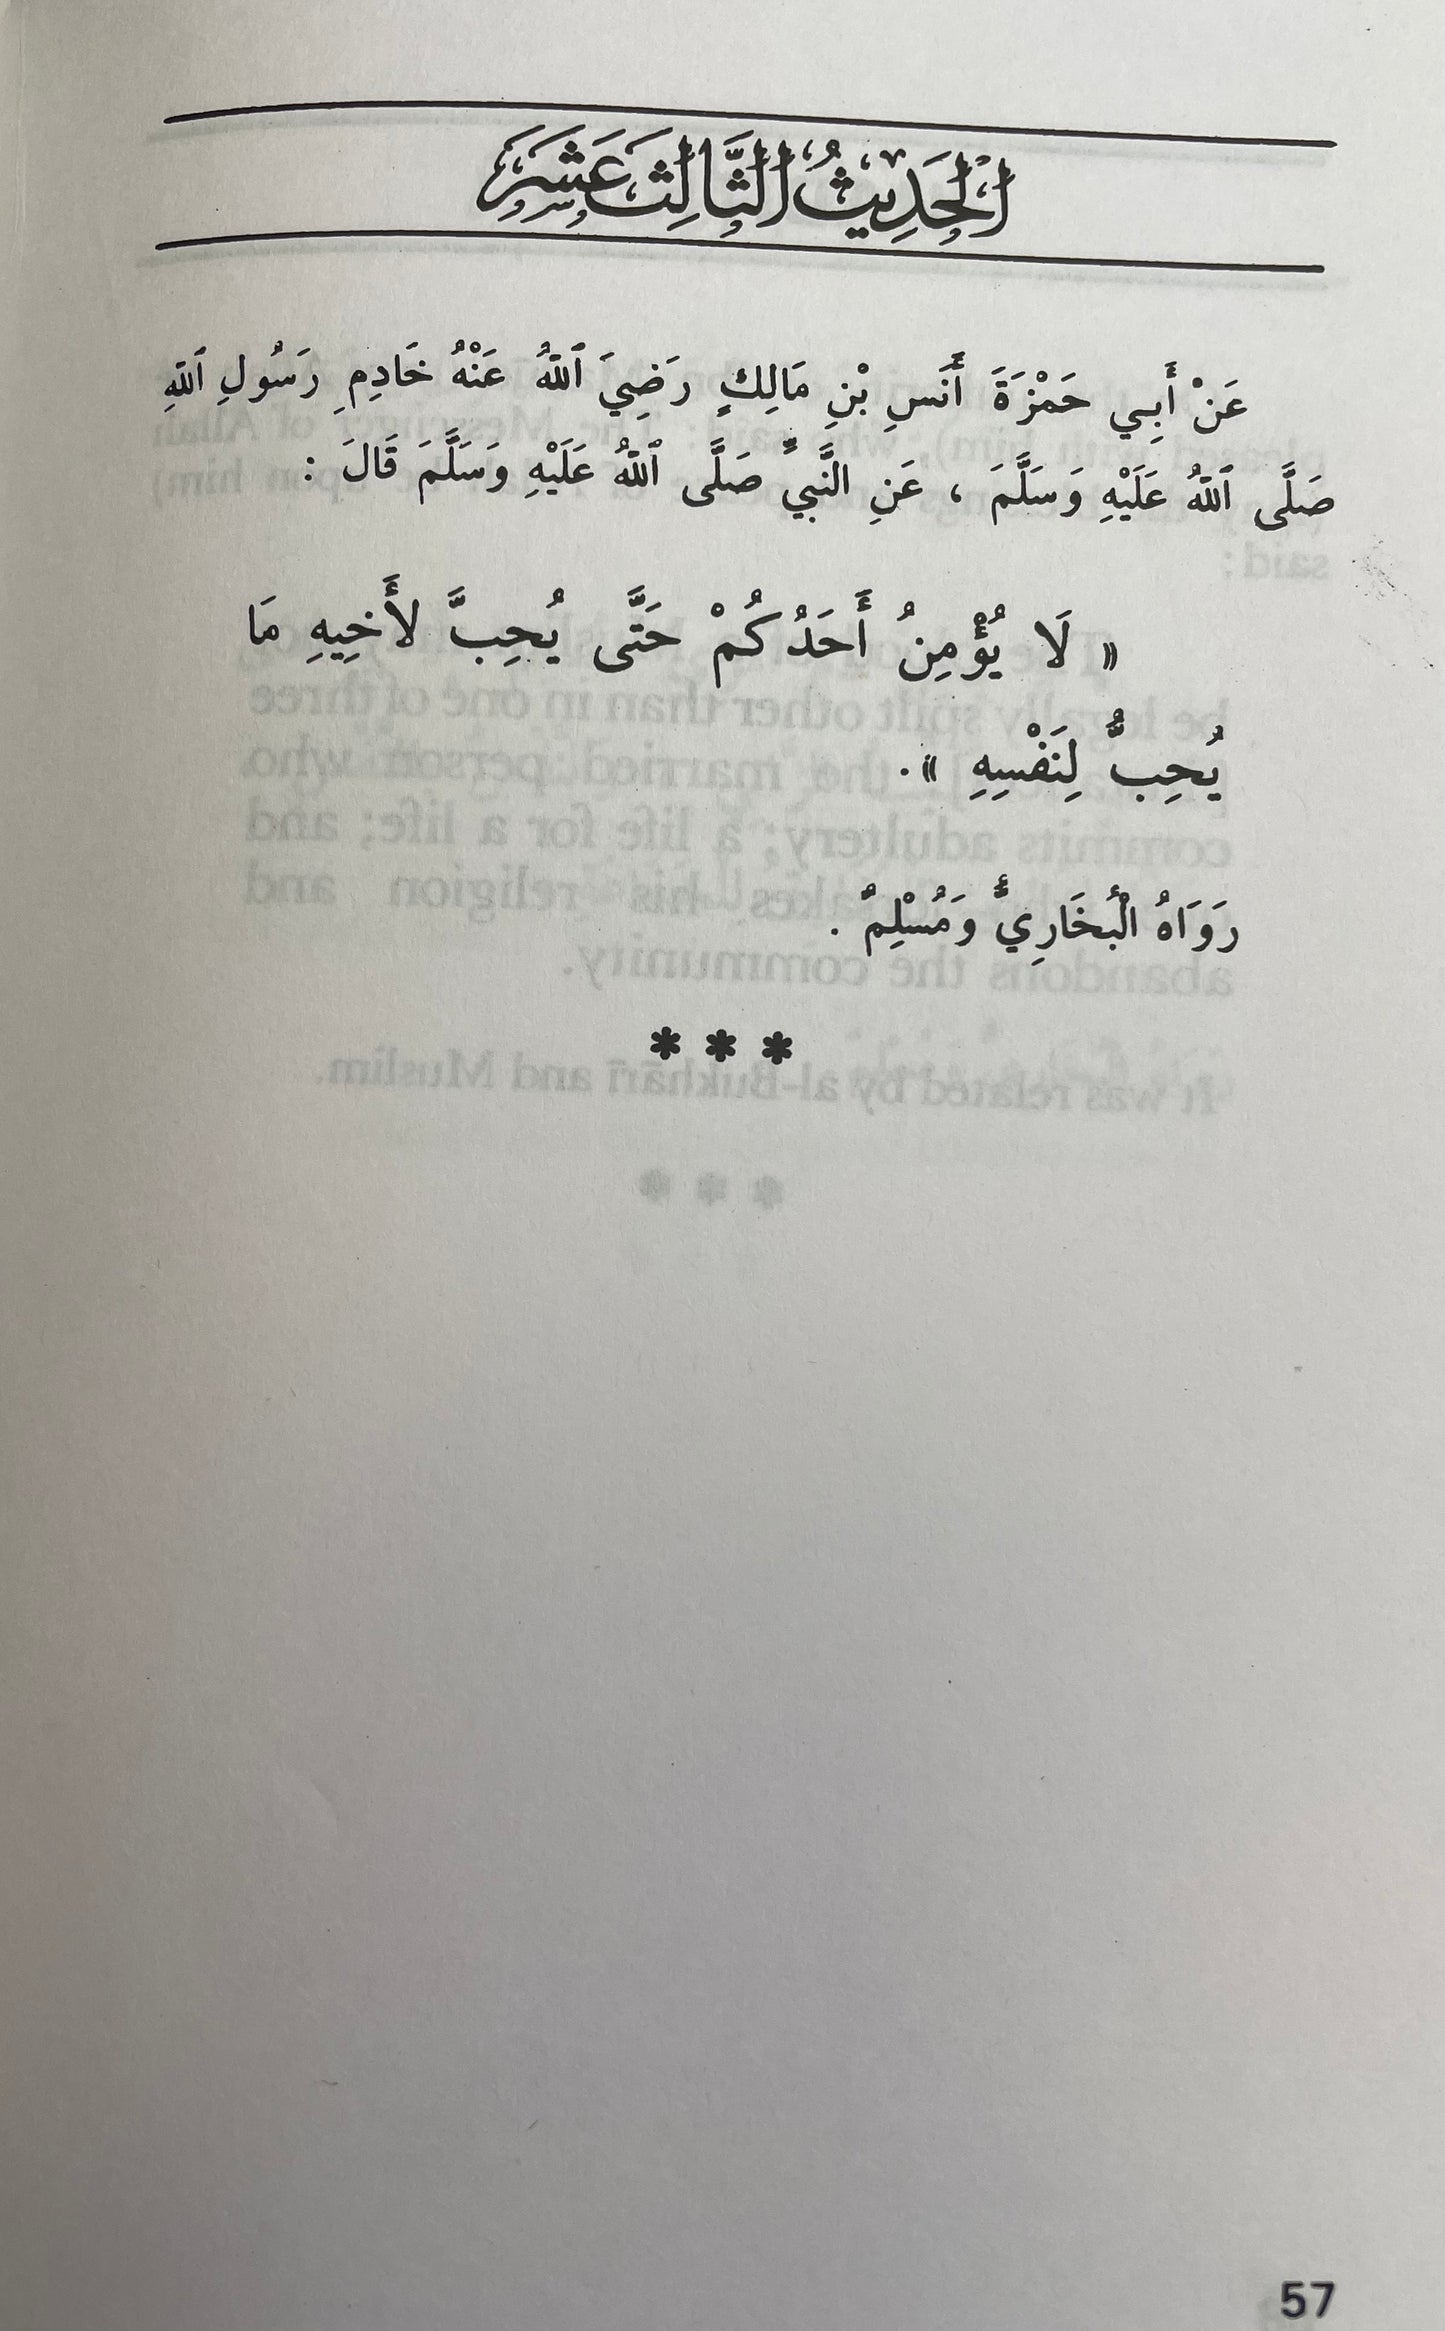 الْحَدِيثُ الثَّالِثَ عَشَرَ
عَنْ أَبِي حَمْزَةَ أَنَسِ بْنِ مَالِكٍ رَضِيَ ٱللّٰهُ عَنْهُ خَادِمِ رَسُولِ ٱللّٰهِ
صَلَّى ٱللّٰهُ عَلَيْهِ وَسَلَّمَ ، عَنِ النَّبِيِّ صَلَّى ٱللّٰهُ عَلَيْهِ وَسَلَّمَ قَالَ :
« لَا يُؤْمِنُ أَحَدُكُمْ حَتَّى يُحِبَّ لأَخِيهِ مَا
يُحِبُّ لِنَفْسِهِ » .
رَوَاهُ الْبُخَارِيُّ وَمُسْلِمٌ .
* * *
57